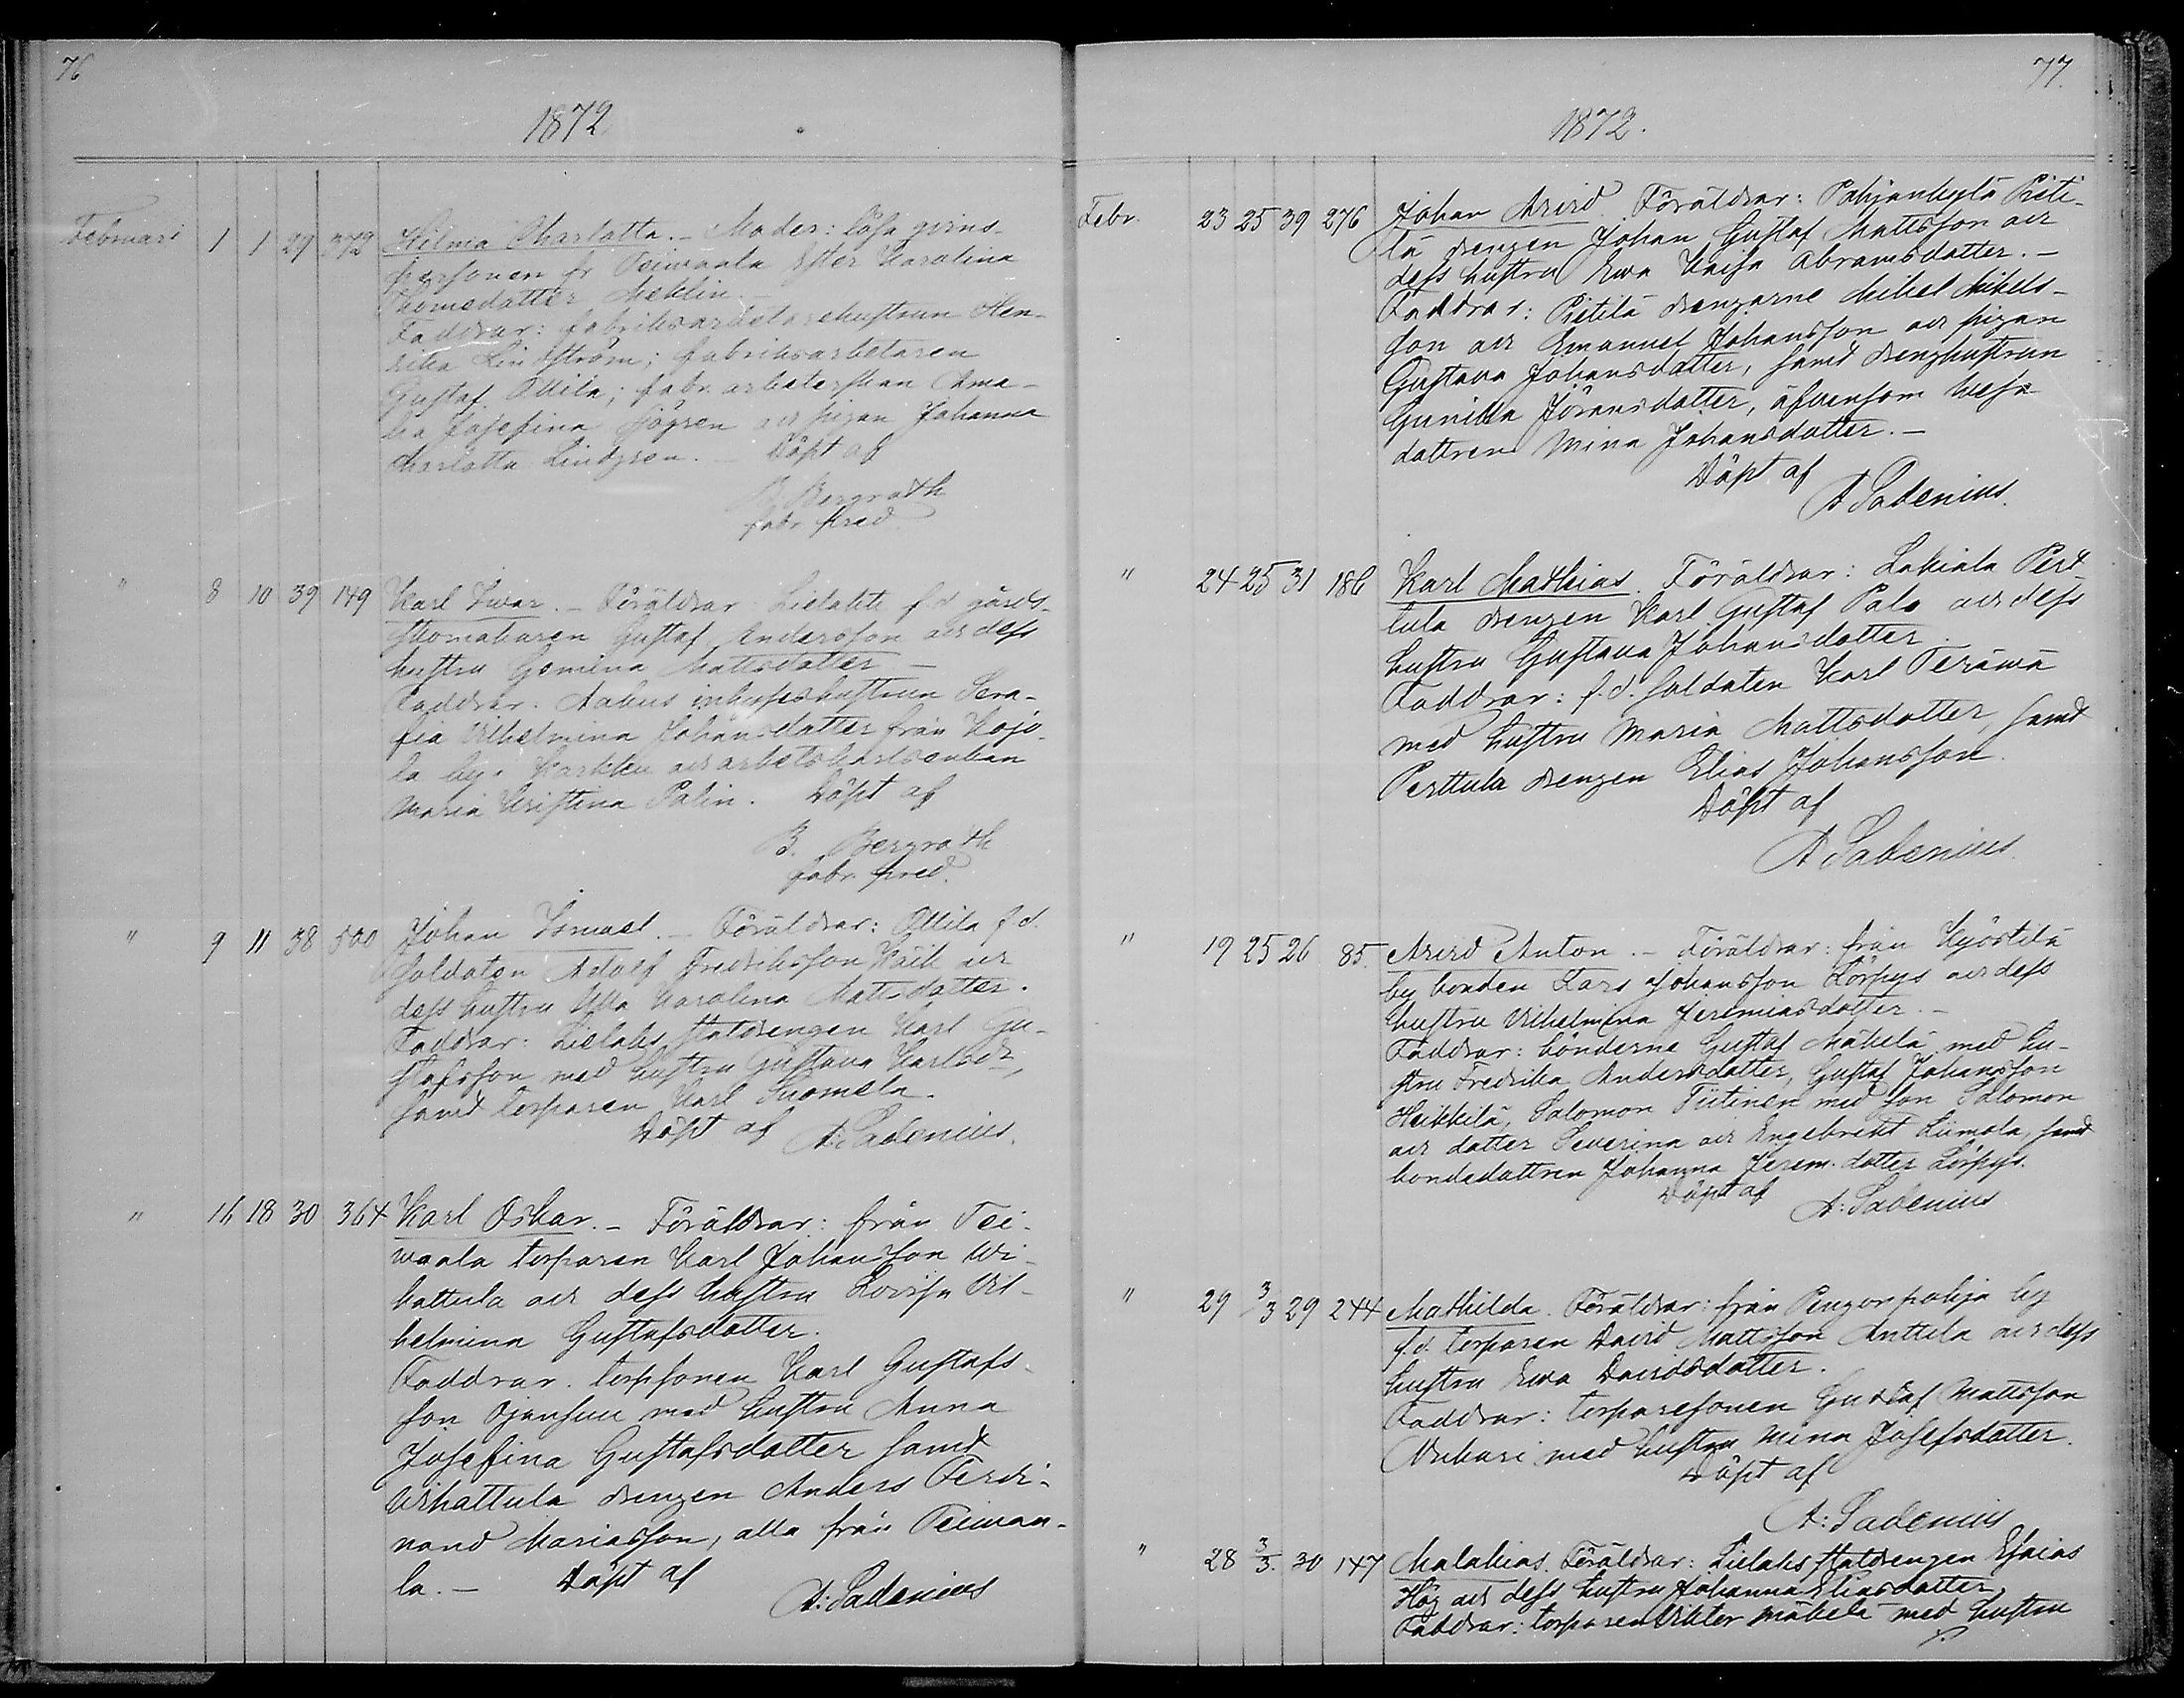 76
1872
Februari 1 1 29 372 Hilma Charlotta. - Moder: lösa qvins-
personen fr Teiwaala Ester Karolina
Thomedotter Meklin -
Faddrar: fabriksarbetarehustrun Hen-
rika Lindström; fabriksarbetaren
Gustaf Ottila; fabr. arbeterskan Ama-
lia Josefina Sjögren och pigan Johanna
Charlotta Lindgren. - Döpt af
B. Bergroth
fabr. pred.
" 8 10 39 149 Karl Iwar. - Föräldrar Lielahti f.d. gårds-
skomakaren Gustaf Andersson och dess
hustru Gomina Mattsdotter -
Faddrar: Aakus inhyseshustrun Sera-
fia Vilhelmina Johansdotter från Kojo-
la by i Karkku och arbetskarlsenkan
Maria Kristina Palin. Döpt af
B. Bergroth
fabr. pred.
" 9 11 38 500 Johan Ismael. - Föräldrar: Ottila f.d.
Soldaten Adolf Fredriksson Käik och
dess hustru Ulla Karolina Mattsdotter.
Faddrar: Lielaks statdrengen Karl Gu-
stafsson med hustru Gustava Karlsdr,
samt torparen Karl Suomela.
Döpt af A: Sadenius.
" 16 18 30 364 Karl Oskar. - Föräldrar: från Tei-
waala torparen Karl Johansson Wi-
hattula och dess hustru Lovisa Vil-
helmina Gustafsdotter.
Faddrar. torpsonen Karl Gustafs-
son Ojansuu med hustru Anna
Josefina Gustafsdotter samt
Wihattula drengen Anders Ferdi-
nand Mariasson, alla från Teiwaa-
la. - Döpt af
A: Sadenius
77.
1872.
Febr. 23 25 39 276 Johan Arvid. Föräldrar: Pohjankylä Pieti-
lä drengen Johan Gustaf Mattsson och
dess hustru Ewa Kaisa Abramsdotter. -
Faddrar: Pietilä drengarne Mikel Mikels-
son och Emanuel Johansson och pigan
Gustava Johansdotter, samt drenghustrun
Gunilla Jöransdotter, äfvensom
dottren Mina Johansdotter. -
Döpt af
A Sadenius.
" 24 25 31 186 Karl Mathias. Föräldrar: Lakiala Pert-
tula drengen Karl Gustaf Palo och dess
hustru Gustava Johansdotter.
Faddrar: f.d. soldaten Karl Teräwä
med hustru Maria Mattsdotter, samt
Perttula drengen Elias Johansson.
Döpt af
A Sadenius.
" 19 25 26 85. Arvid Anton. - Föräldrar: från Kyöstilä
by bonden Lars Johansson Lörpys och dess
hustru Vilhelmina Jeremiasdotter. -
Faddrar: bönderne Gustaf Mäkelä med hu-
stru Fredrika Andersdotter, Gustaf Johansson
Heikkilä, Salomon Tiitinen med son Salomon
och dotter Severina och Engebrekt Liimola, samt
bondedottren Johanna Jerem. dotter Lörpys.
Döpt af A: Sadenius
" 29 3/3 29 244 Mathilda. Föräldrar: från Pengonpohja by
f.d. torparen David Mattsson Anttila och dess
hustru Ewa Davidsdotter.
Faddrar: torparesonen Gustaf Mattsson
med hustru Mina Josefsdotter.
Döpt af
A: Sadenius
" 28 3/3. 30 147 Malakias. Föräldrar: Lielaks statdrengen Esaias
Hög och dess hustru Johanna Eliasdotter.
Faddrar: torparen Viktor Mäkelä med hustru